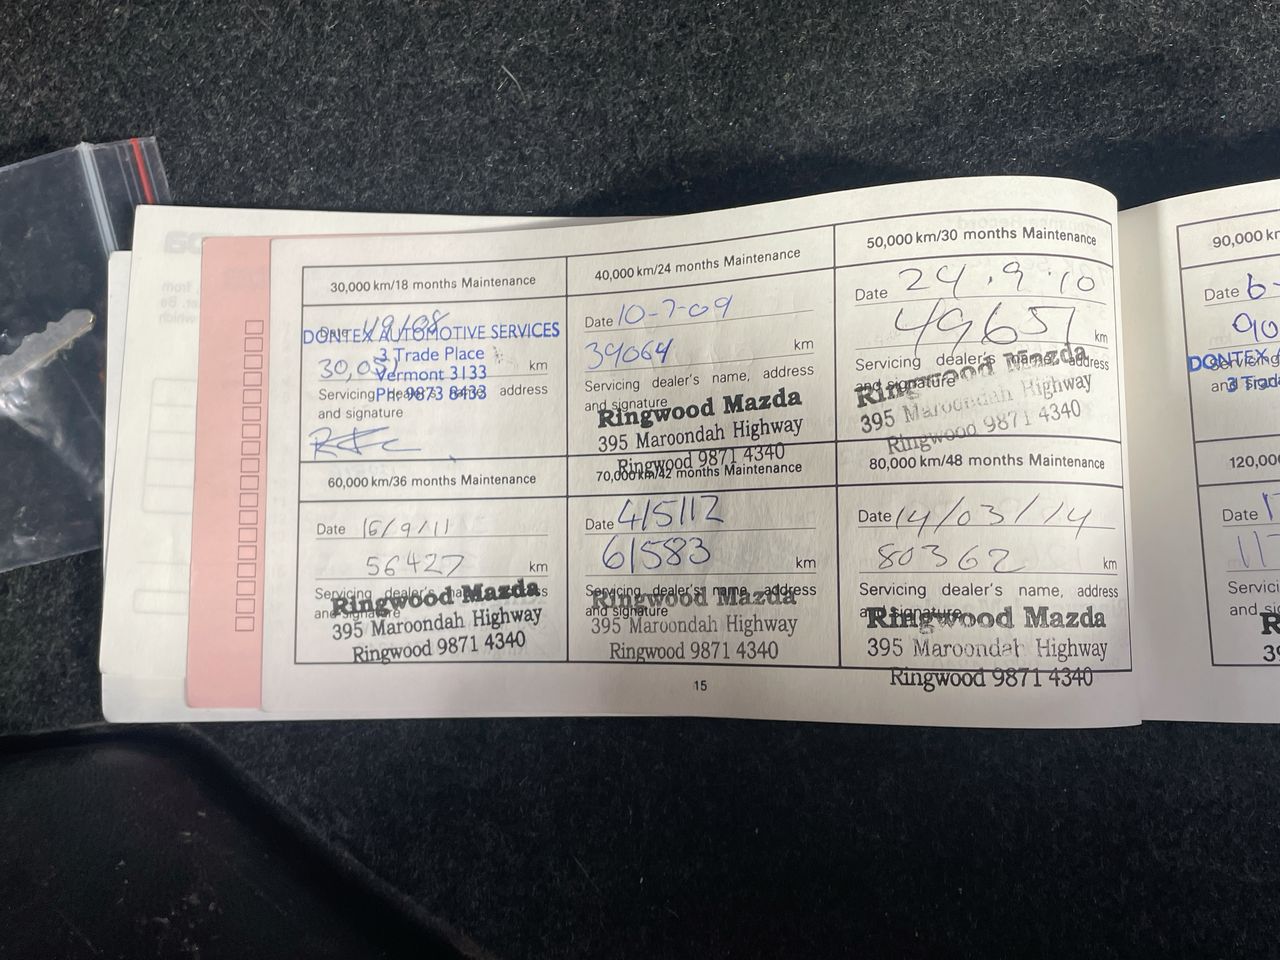 30,000 km/18 months Maintenance
Date
DONTEX AUTOMOTIVE SERVICES
3 Trade Place
km
Vermont 3133
Servicing address
Ph: 9873 8433
and signature
40,000 km/24 months Maintenance
Date 10-7-09
39064 km
Servicing dealer's name, address
and signature
Ringwood Mazda
395 Maroondah Highway
Ringwood 9871 4340
50,000 km/30 months Maintenance
Date 24.9.10
49651 km
Servicing dealer's name, address
and signature
Ringwood Mazda
395 Maroondah Highway
Ringwood 9871 4340
60,000 km/36 months Maintenance
Date 15/9/11
56427 km
Servicing dealer's name, address
and signature
Ringwood Mazda
395 Maroondah Highway
Ringwood 9871 4340
70,000 km/42 months Maintenance
Date 4/5/12
61583 km
Servicing dealer's name, address
and signature
Ringwood Mazda
395 Maroondah Highway
Ringwood 9871 4340
80,000 km/48 months Maintenance
Date 14/03/14
80362 km
Servicing dealer's name, address
and signature
Ringwood Mazda
395 Maroondah Highway
Ringwood 9871 4340
15
90,000 k
Date 6-
90
DONTEX
3 Trad
120,000
Date 1
Servici
and si
R
39